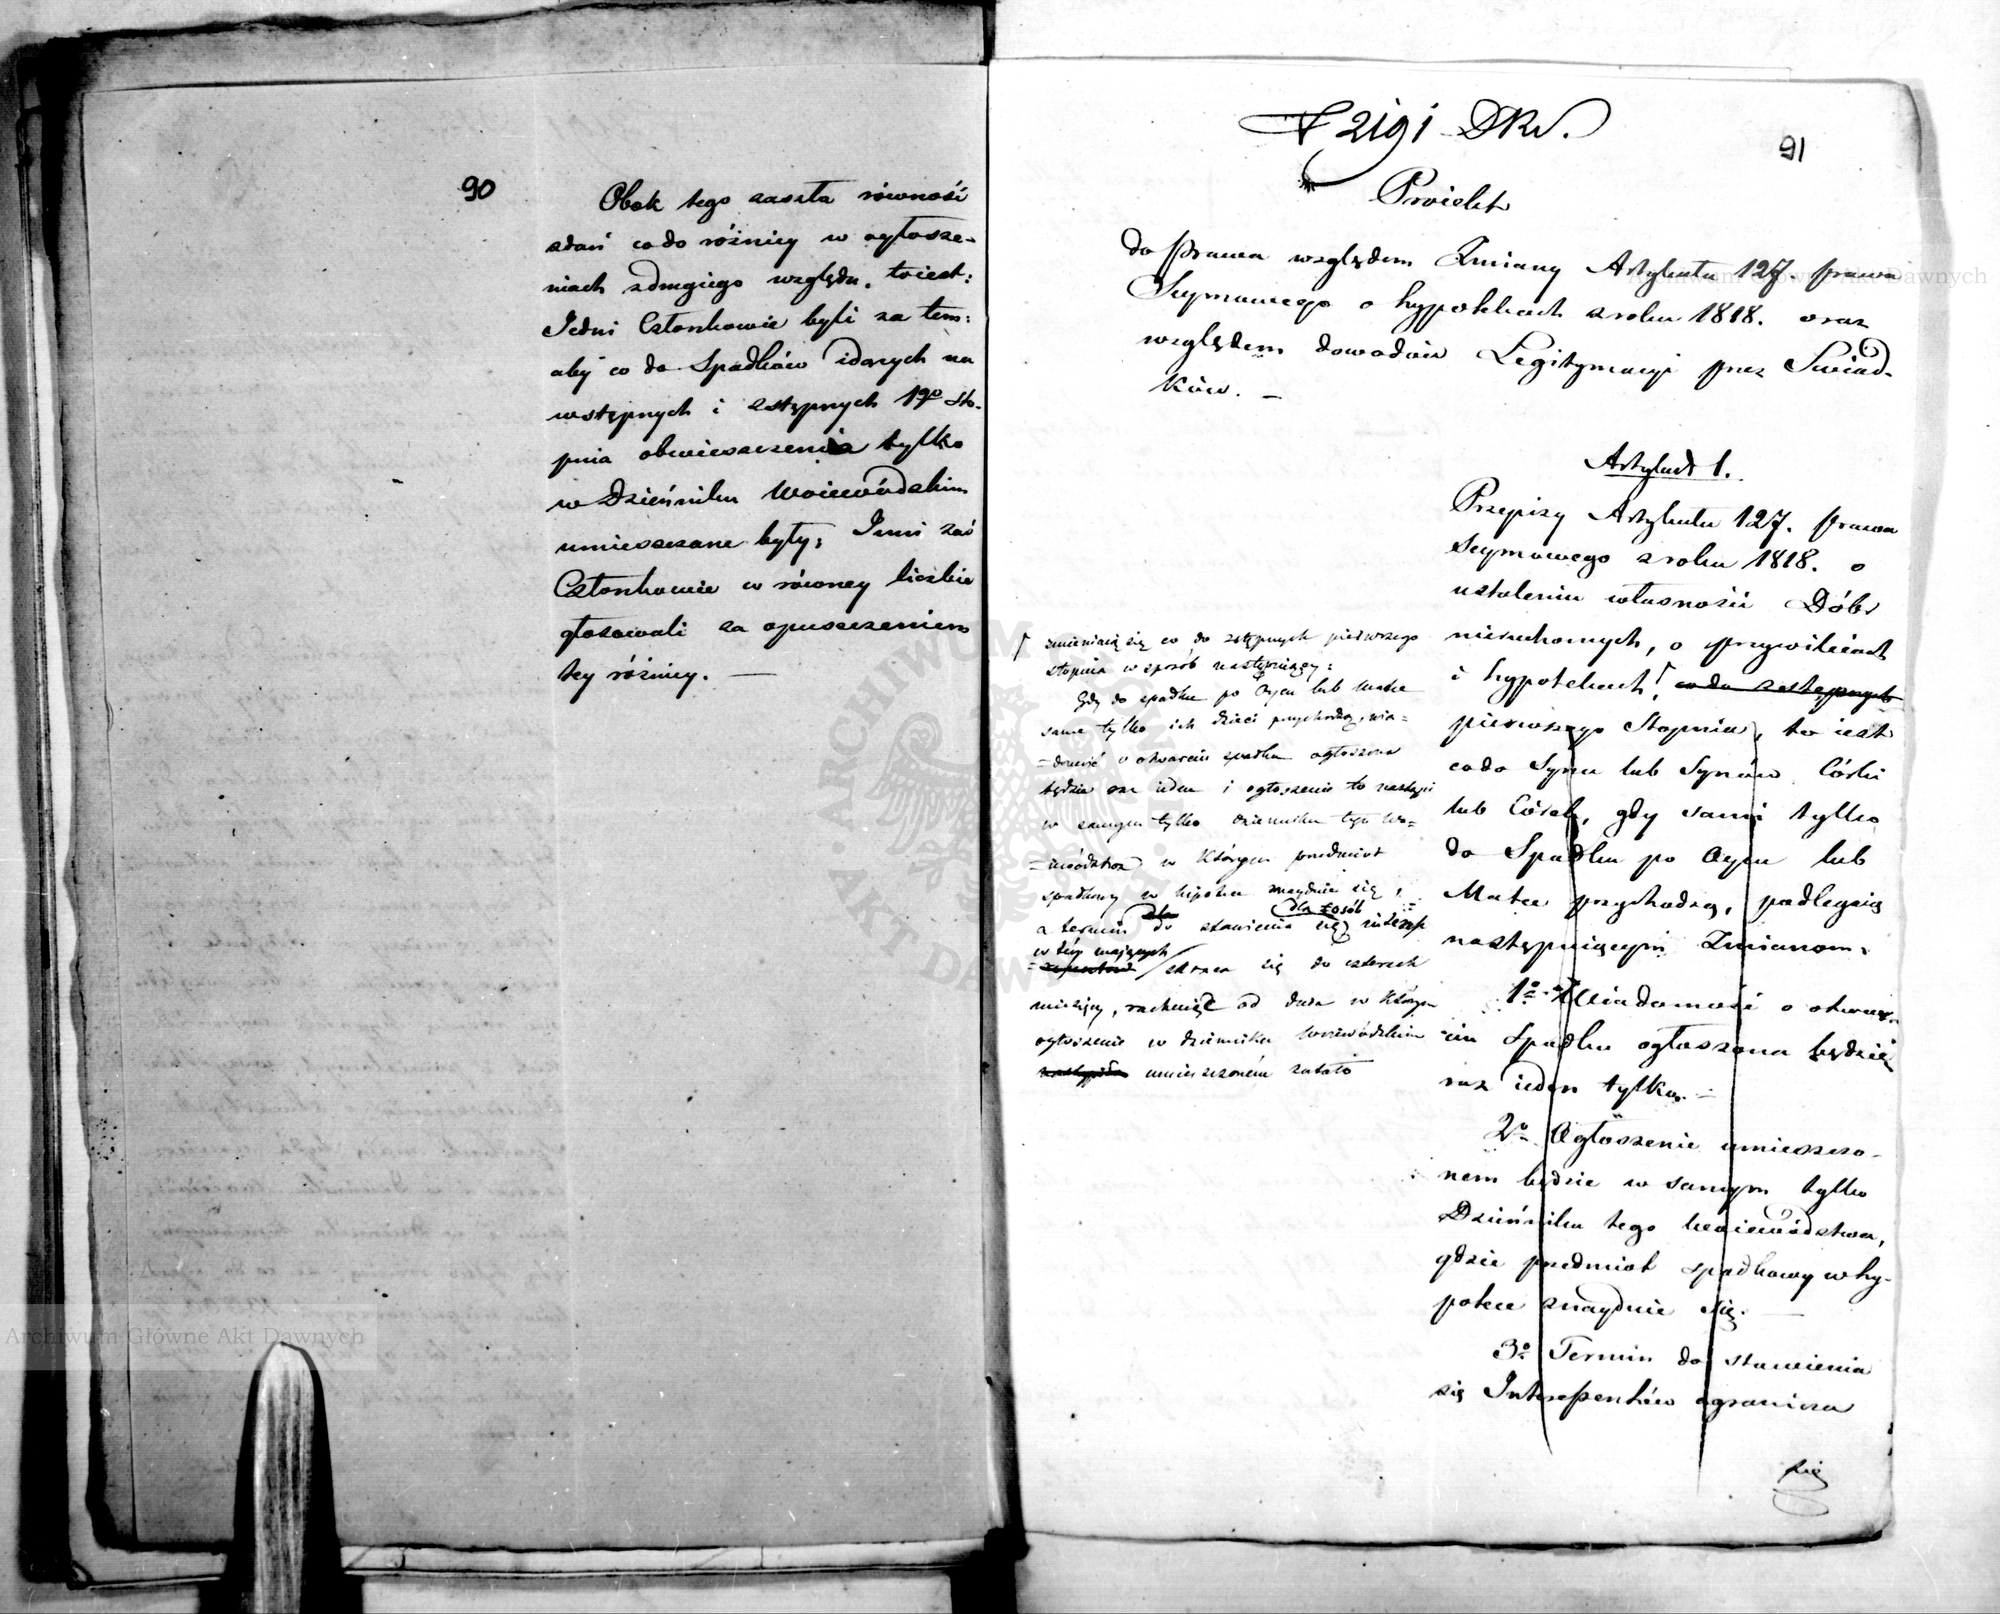 90
Obok tego zaszła równość
zdań co do różnicy w ogłosze-
niach z drugiego względu, toiest:
Jedni Członkowie byli za tem:
aby co do Spadków idących na
wstępnych i zstępnych 1go sto-
pnia obwieszczenia tylko
w Dzienniku Woiewódzkim
umieszczane były; Inni zaś
Członkowie w równey liczbie
głosowali za opuszczeniem
tey różnicy. —
91
Proiekt
do Prawa względem Zmiany Artykułu 127. prawa
Seymowego o hypotekach z roku 1818. oraz
względem dowodów Legitymacyi przez Swiad-
ków. —
Artykuł 1.
Przepisy Artykułu 127. Prawa
Seymowego z roku 1818. o
ustaleniu własności Dóbr
nieruchomych, o przywileiach
i hypotekach, co do zstępnych
pierwszego Stopnia, to iest
co do Syna lub Synów Córki
lub Córek, gdy sami tylko
do Spadku po Oycu lub
Matce przychodzą, podlegaią
następuiącym Zmianom.
1o Wiadomość o otwar-
ciu Spadku ogłoszona będzie
raz ieden tylko. —
2o Ogłoszenie umieszczo-
nem będzie w samym tylko
Dzienniku tego Woiewództwa,
gdzie przedmiot spadkowy w hy-
potece znayduie się. —
3o Termin do stawienia
się Interessentów ogranicza
się
zmieniaią się co do zstępnych pierwszego
stopnia w sposób następuiący:
Gdy do spadku po Oycu lub Matce
same tylko ich dzieci przychodzą, wia=
=domość o otwarciu spadku ogłoszona
będzie raz ieden i ogłoszenie to nastąpi
w samym tylko dzienniku tego Wo=
=iewództwa w którym przedmiot
spadkowy w hipotece znayduie się,
a termin do stawienia się dla osób interes
w tém maiących skraca się do czterech
miesięcy, rachuiąc od dnia w którym
ogłoszenie w dzienniku Woiewódzkim
umieszczoném zostało
Archiwum Główne Akt Dawnych
Archiwum Główne Akt Dawnych
ARCHIWUM GŁÓWNE
AKT DAWNYCH